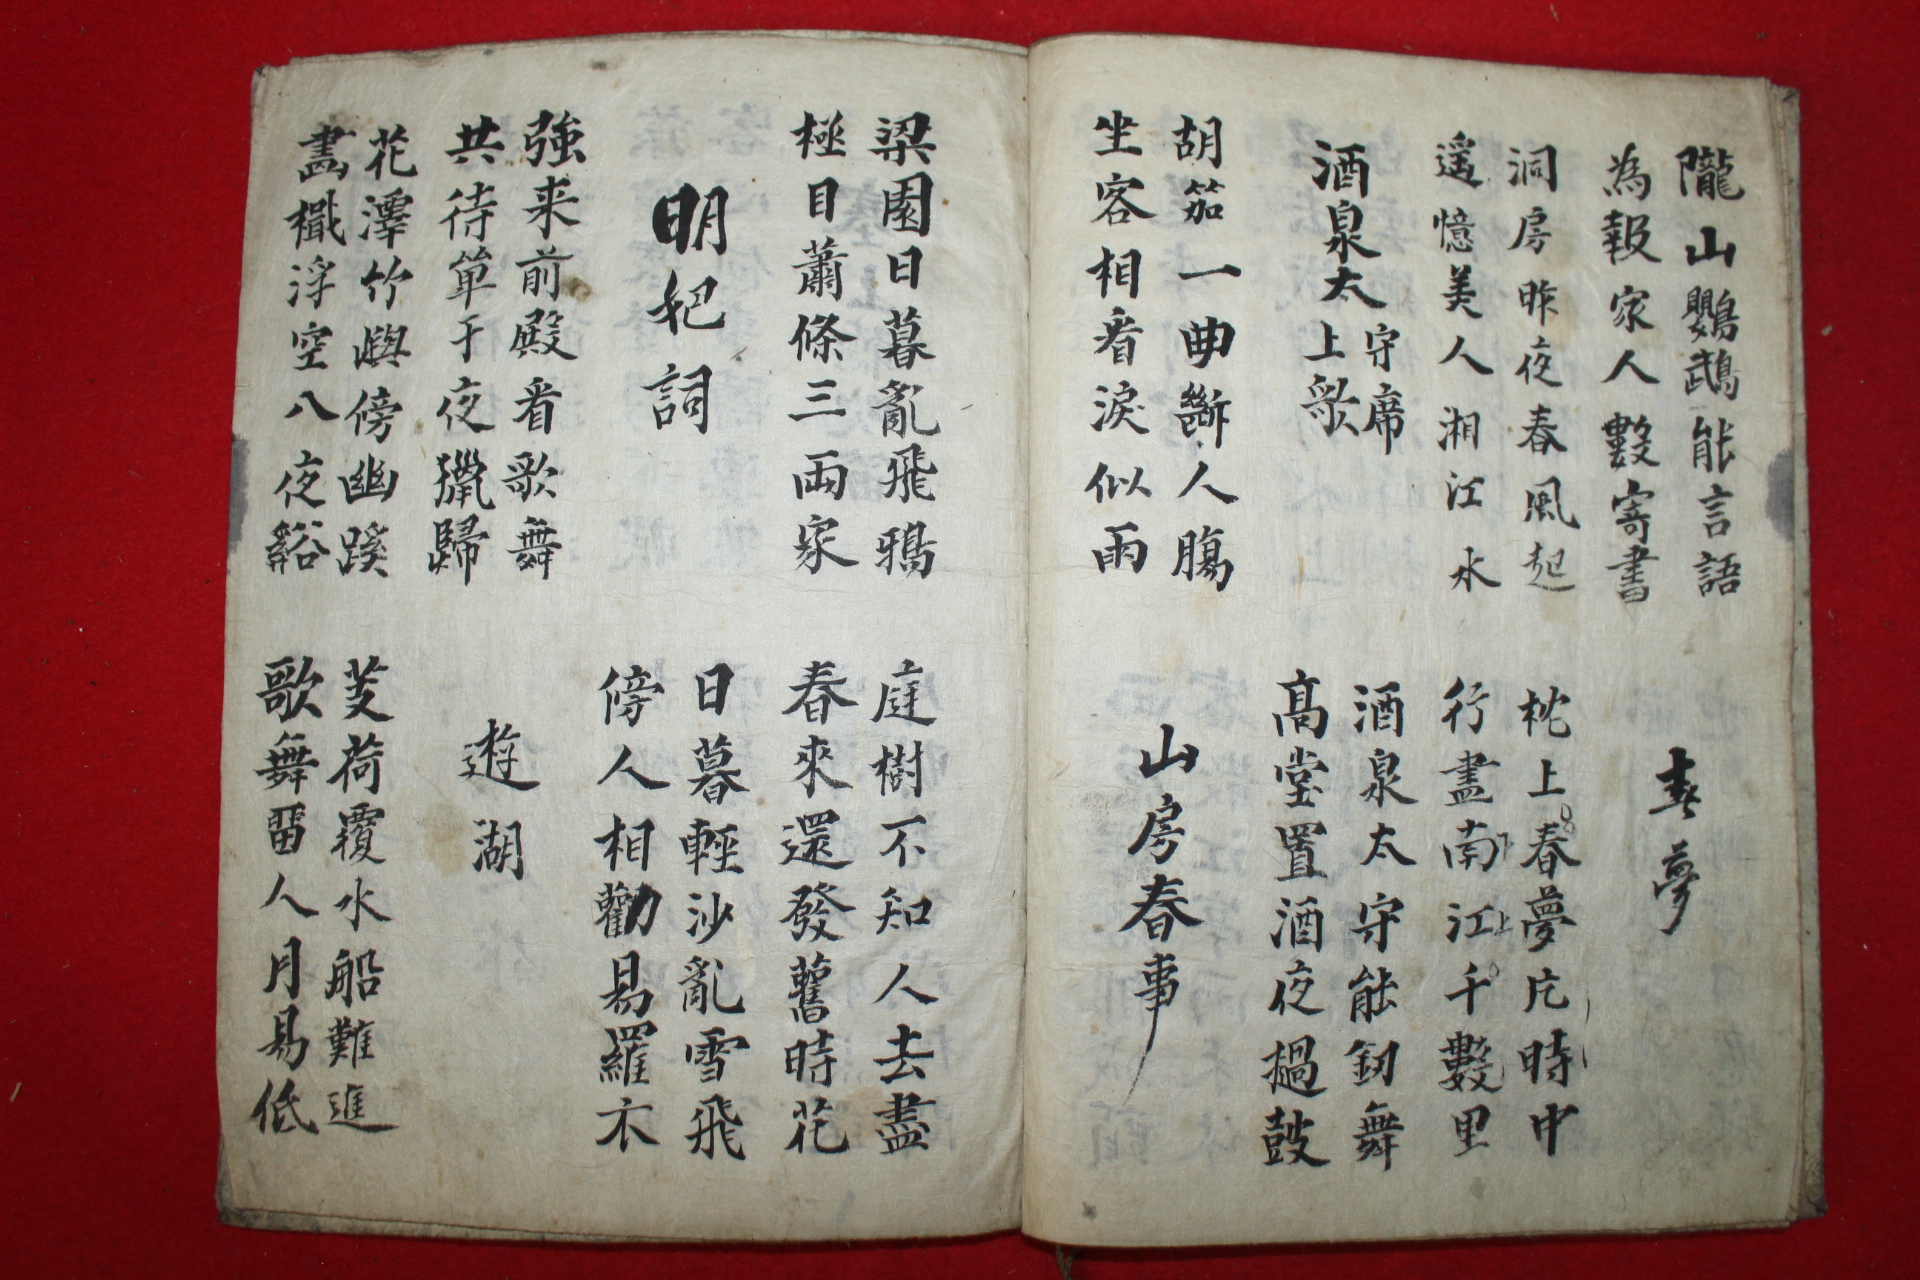 隴山鸚鵡能言語
為報家人數寄書
春夢
洞房昨夜春風起
遥憶美人湘江水
枕上春夢片時中
行盡南江千數里
酒泉太守席上歌
酒泉太守能釰舞
高堂置酒夜撾鼓
胡笳一曲斷人腸
坐客相看淚似雨
山房春事
梁園日暮亂飛鴉
極目蕭條三兩家
庭樹不知人去盡
春來還發舊時花
明妃詞
日暮輕沙亂雪飛
傍人相勸易羅衣
強来前殿看歌舞
共待単于夜獵歸
遊湖
花澤竹嶼傍幽蹊
畵檝浮空八夜谿
芰荷覆水船難進
歌舞畱人月易低